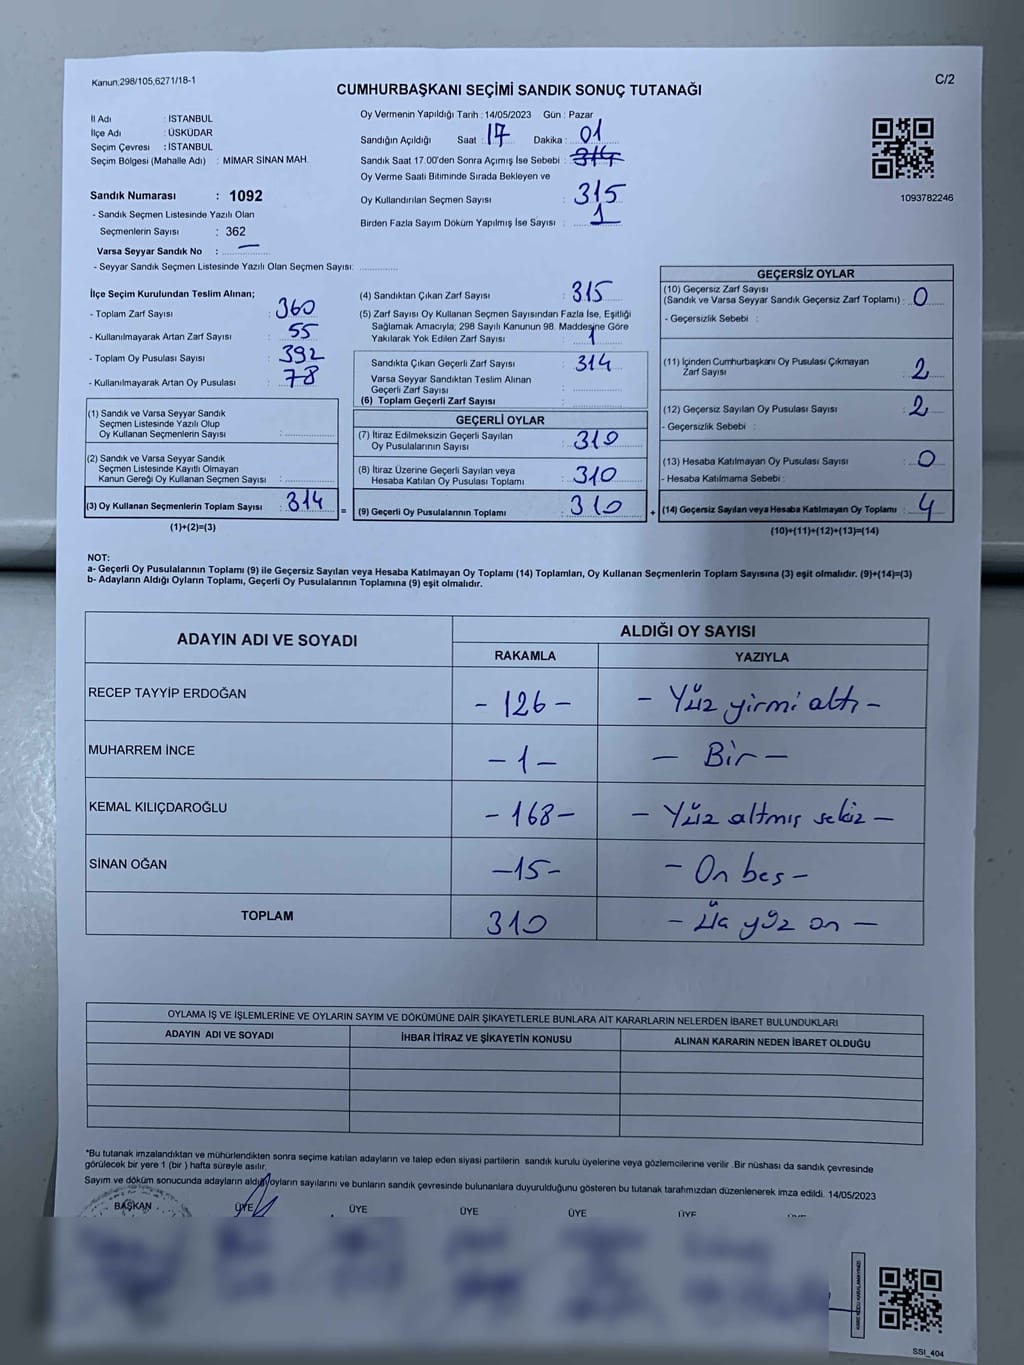 Kanun,298/105,6271/18-1
C/2
CUMHURBAŞKANI SEÇİMİ SANDIK SONUÇ TUTANAĞI
İl Adı : İSTANBUL
İlçe Adı : ÜSKÜDAR
Seçim Çevresi : İSTANBUL
Seçim Bölgesi (Mahalle Adı) : MİMAR SİNAN MAH.
Sandık Numarası : 1092
- Sandık Seçmen Listesinde Yazılı Olan
Seçmenlerin Sayısı : 362
Varsa Seyyar Sandık No : —
- Seyyar Sandık Seçmen Listesinde Yazılı Olan Seçmen Sayısı:
Oy Vermenin Yapıldığı Tarih : 14/05/2023 Gün : Pazar
Sandığın Açıldığı Saat : 17 Dakika : 01
Sandık Saat 17.00'den Sonra Açımış İse Sebebi : 314
Oy Verme Saati Bitiminde Sırada Bekleyen ve
Oy Kullandırılan Seçmen Sayısı : 315
Birden Fazla Sayım Döküm Yapılmış İse Sayısı : 1
1093782246
İlçe Seçim Kurulundan Teslim Alınan;
- Toplam Zarf Sayısı : 360
- Kullanılmayarak Artan Zarf Sayısı : 55
- Toplam Oy Pusulası Sayısı : 392
- Kullanılmayarak Artan Oy Pusulası : 78
(1) Sandık ve Varsa Seyyar Sandık
Seçmen Listesinde Yazılı Olup
Oy Kullanan Seçmenlerin Sayısı :
(2) Sandık ve Varsa Seyyar Sandık
Seçmen Listesinde Kayıtlı Olmayan
Kanun Gereği Oy Kullanan Seçmen Sayısı :
(3) Oy Kullanan Seçmenlerin Toplam Sayısı : 314
(1)+(2)=(3)
(4) Sandıktan Çıkan Zarf Sayısı : 315
(5) Zarf Sayısı Oy Kullanan Seçmen Sayısından Fazla İse, Eşitliği
Sağlamak Amacıyla; 298 Sayılı Kanunun 98. Maddesine Göre
Yakılarak Yok Edilen Zarf Sayısı : 1
Sandıkta Çıkan Geçerli Zarf Sayısı : 314
Varsa Seyyar Sandıktan Teslim Alınan
Geçerli Zarf Sayısı :
(6) Toplam Geçerli Zarf Sayısı :
GEÇERLİ OYLAR
(7) İtiraz Edilmeksizin Geçerli Sayılan
Oy Pusulalarının Sayısı : 310
(8) İtiraz Üzerine Geçerli Sayılan veya
Hesaba Katılan Oy Pusulası Toplamı : 310
= (9) Geçerli Oy Pusulalarının Toplamı : 310
GEÇERSİZ OYLAR
(10) Geçersiz Zarf Sayısı
(Sandık ve Varsa Seyyar Sandık Geçersiz Zarf Toplamı) : 0
- Geçersizlik Sebebi :
(11) İçinden Cumhurbaşkanı Oy Pusulası Çıkmayan
Zarf Sayısı : 2
(12) Geçersiz Sayılan Oy Pusulası Sayısı : 2
- Geçersizlik Sebebi :
(13) Hesaba Katılmayan Oy Pusulası Sayısı : 0
- Hesaba Katılmama Sebebi :
+ (14) Geçersiz Sayılan veya Hesaba Katılmayan Oy Toplamı : 4
(10)+(11)+(12)+(13)=(14)
NOT:
a- Geçerli Oy Pusulalarının Toplamı (9) ile Geçersiz Sayılan veya Hesaba Katılmayan Oy Toplamı (14) Toplamları, Oy Kullanan Seçmenlerin Toplam Sayısına (3) eşit olmalıdır. (9)+(14)=(3)
b- Adayların Aldığı Oyların Toplamı, Geçerli Oy Pusulalarının Toplamına (9) eşit olmalıdır.
ADAYIN ADI VE SOYADI ALDIĞI OY SAYISI
RAKAMLA YAZIYLA
RECEP TAYYİP ERDOĞAN - 126 - - Yüz yirmi altı -
MUHARREM İNCE - 1 - - Bir -
KEMAL KILIÇDAROĞLU - 168 - - Yüz altmış sekiz -
SİNAN OĞAN - 15 - - On beş -
TOPLAM 310 - Üç yüz on -
OYLAMA İŞ VE İŞLEMLERİNE VE OYLARIN SAYIM VE DÖKÜMÜNE DAİR ŞİKAYETLERLE BUNLARA AİT KARARLARIN NELERDEN İBARET BULUNDUKLARI
ADAYIN ADI VE SOYADI İHBAR İTİRAZ VE ŞİKAYETİN KONUSU ALINAN KARARIN NEDEN İBARET OLDUĞU
*Bu tutanak imzalandıktan ve mühürlendikten sonra seçime katılan adayların ve talep eden siyasi partilerin sandık kurulu üyelerine veya gözlemcilerine verilir .Bir nüshası da sandık çevresinde
görülecek bir yere 1 (bir ) hafta süreyle asılır.
Sayım ve döküm sonucunda adayların aldığı oyların sayılarını ve bunların sandık çevresinde bulunanlara duyurulduğunu gösteren bu tutanak tarafımızdan düzenlenerek imza edildi. 14/05/2023
BAŞKAN ÜYE ÜYE ÜYE ÜYE ÜYE
KAREKODU KARALAMAYINIZ!
SSI_404